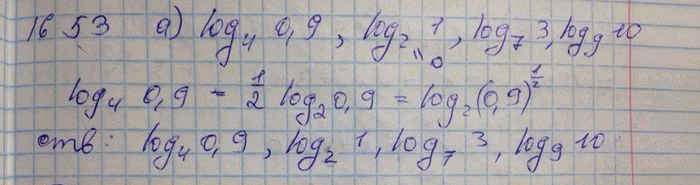 1653 а) log₄ 0,9 , log₂ 1 , log₇ 3, log₉ 10
" 0
log₄ 0,9 = 1/2 log₂ 0,9 = log₂ (0,9)^1/2
отв: log₄ 0,9 , log₂ 1 , log₇ 3 , log₉ 10